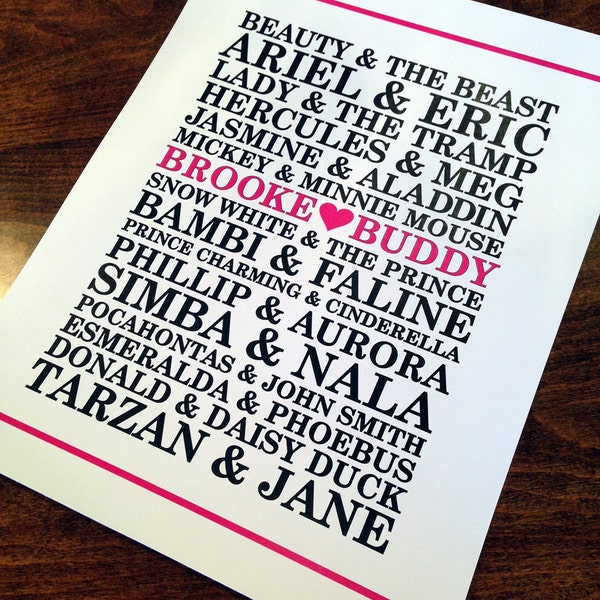 BEAUTY & THE BEAST
ARIEL & ERIC
LADY & THE TRAMP
HERCULES & MEG
JASMINE & ALADDIN
MICKEY & MINNIE MOUSE
BROOKE ♥ BUDDY
SNOW WHITE & THE PRINCE
BAMBI & FALINE
PRINCE CHARMING & CINDERELLA
PHILLIP & AURORA
SIMBA & NALA
POCAHONTAS & JOHN SMITH
ESMERALDA & PHOEBUS
DONALD & DAISY DUCK
TARZAN & JANE